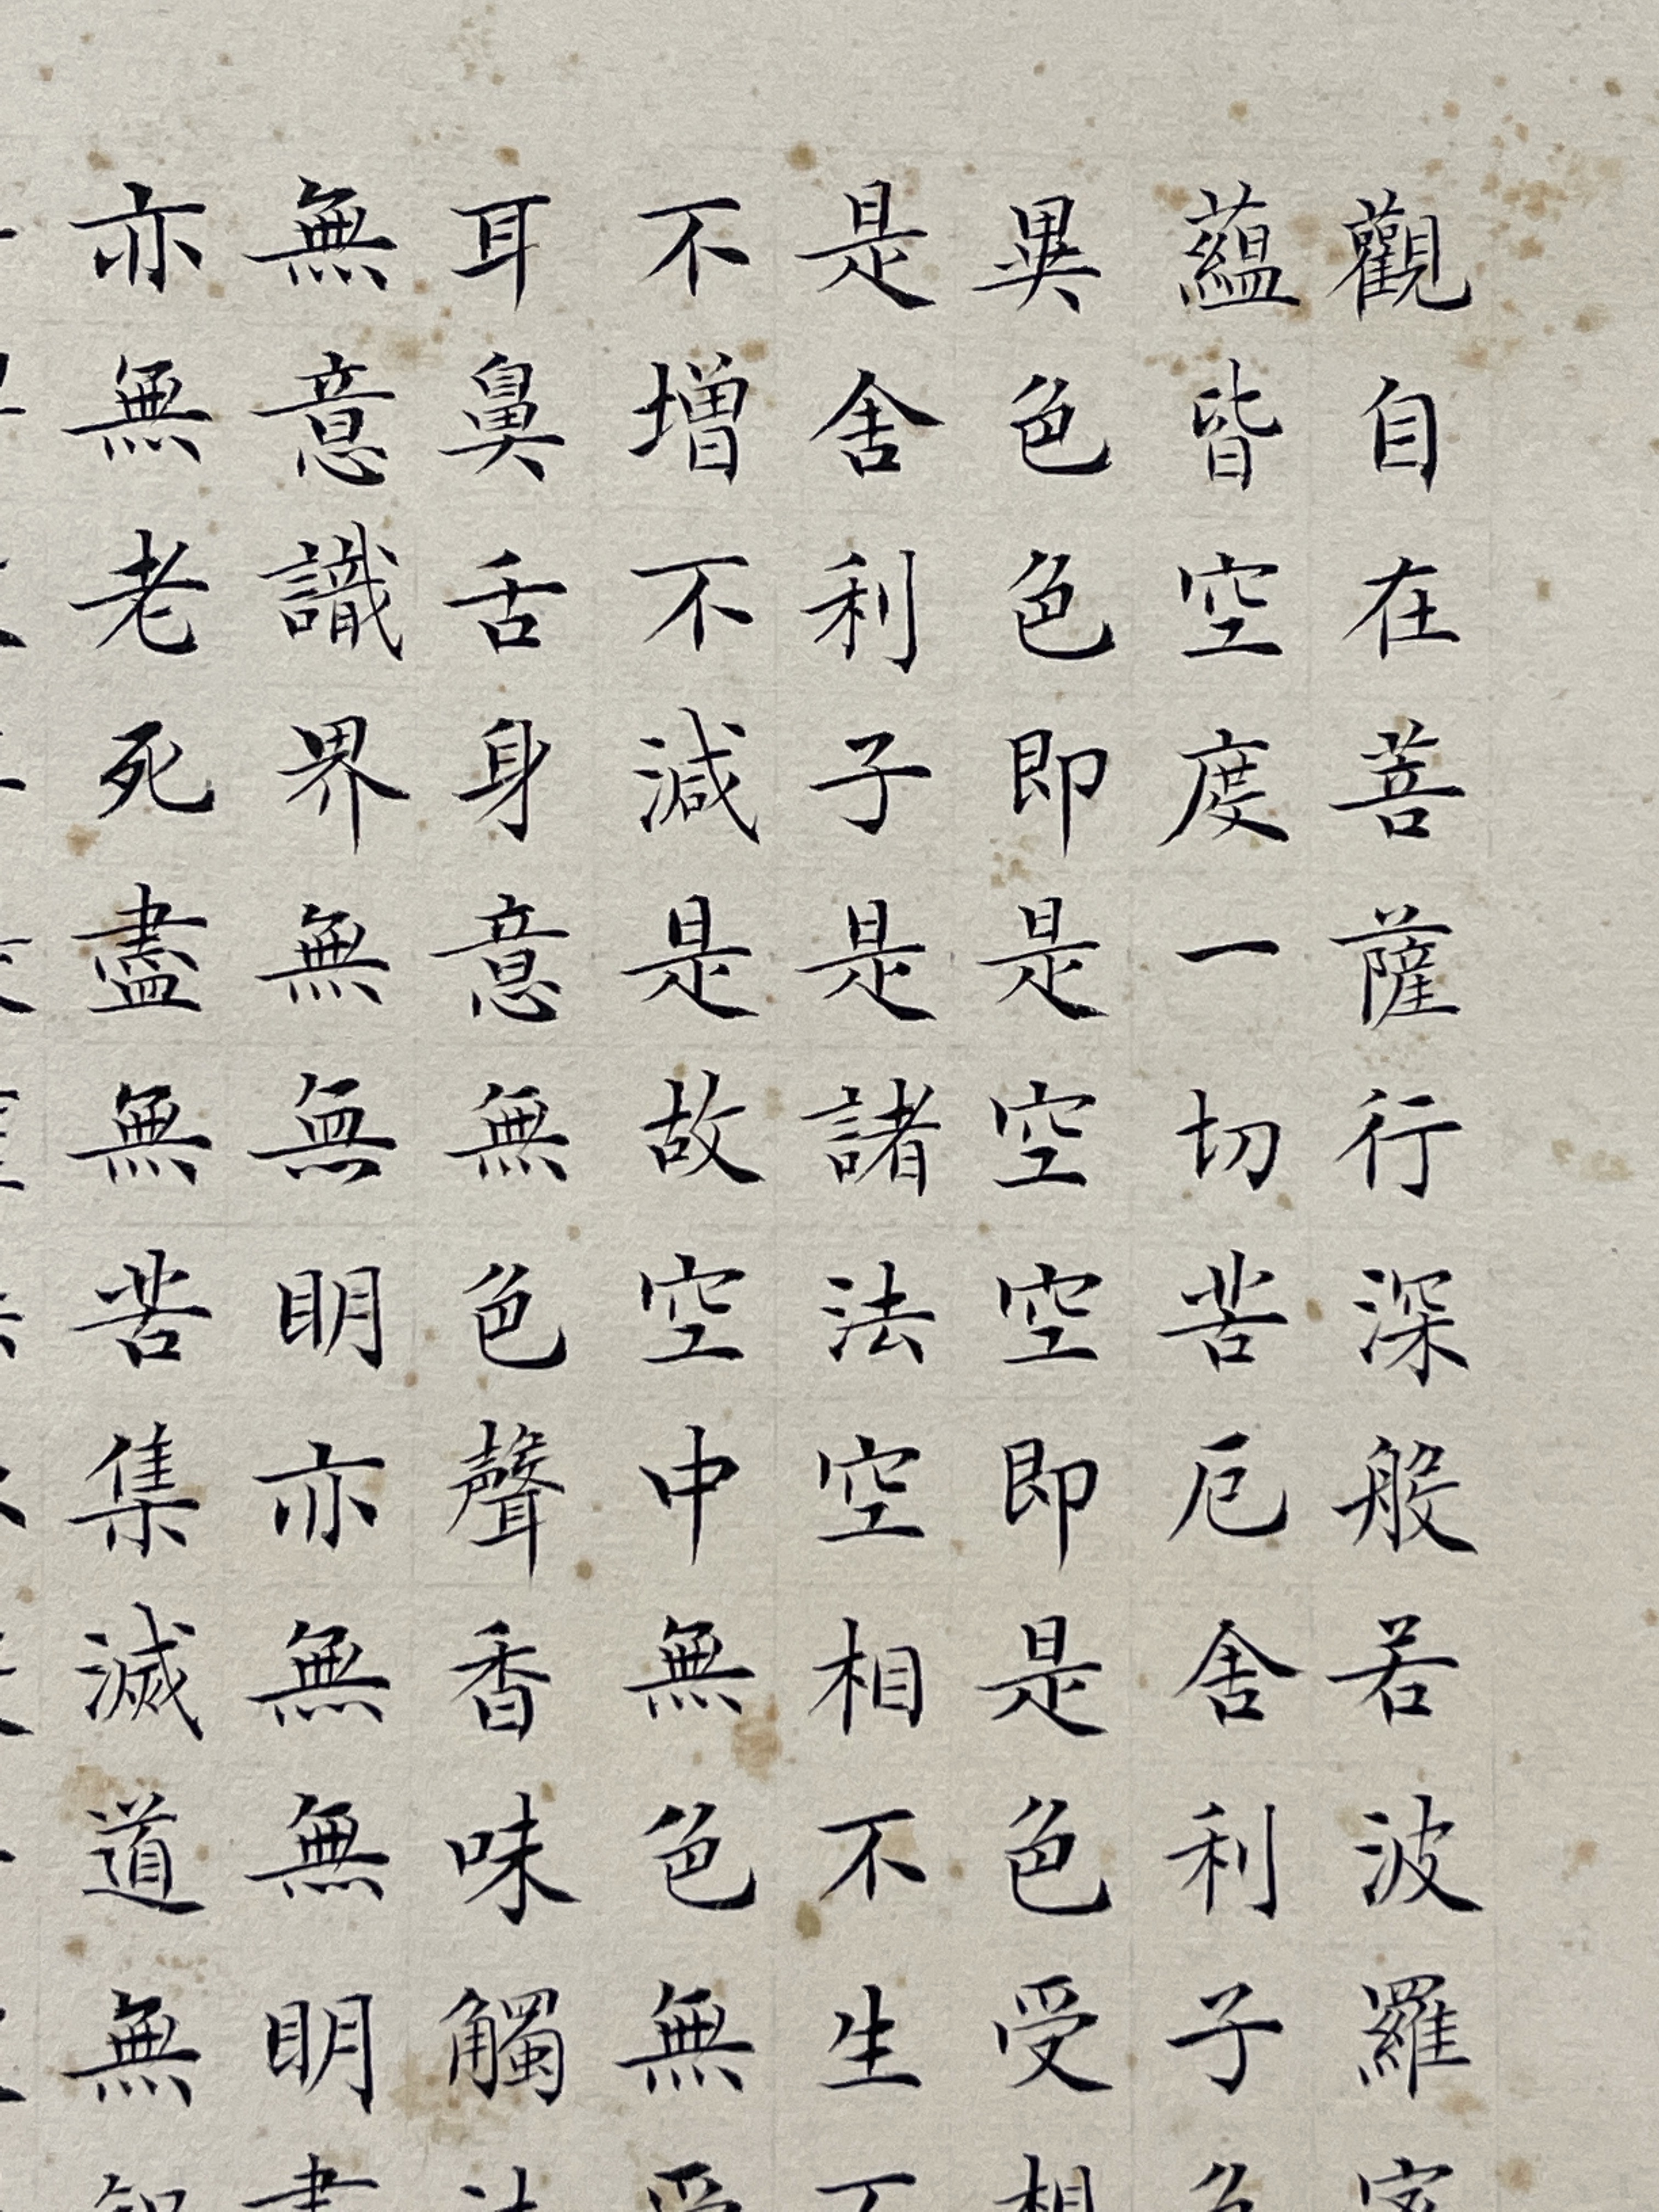 觀自在菩薩行深般若波羅密
蘊皆空度一切苦厄舍利子色
異色色即是空空即是色受相
是舍利子是諸法空相不生不
不增不減是故空中無色無受
耳鼻舌身意無色聲香味觸法
無意識界無無明亦無無明盡
亦無老死盡無苦集滅道無智